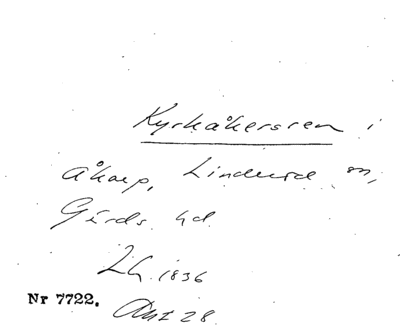 Kyrkåkersren i
Åkarp, Linderöd sn,
Gärds hd
1836
Nr 7722.
28